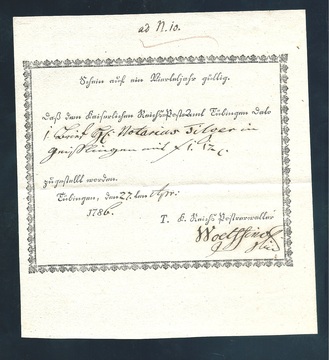 ad N. 10.
Schein auf ein Vierteljahr gültig.
Daß dem Kaiserlichen Reichs-Postamt Tübingen dato
1 Brief Notarius Pilger in
Geisslingen mit f 1. 12
zugestellt worden.
Tübingen, den 27. ten
1786.
T. K. Reichs-Postverwalter